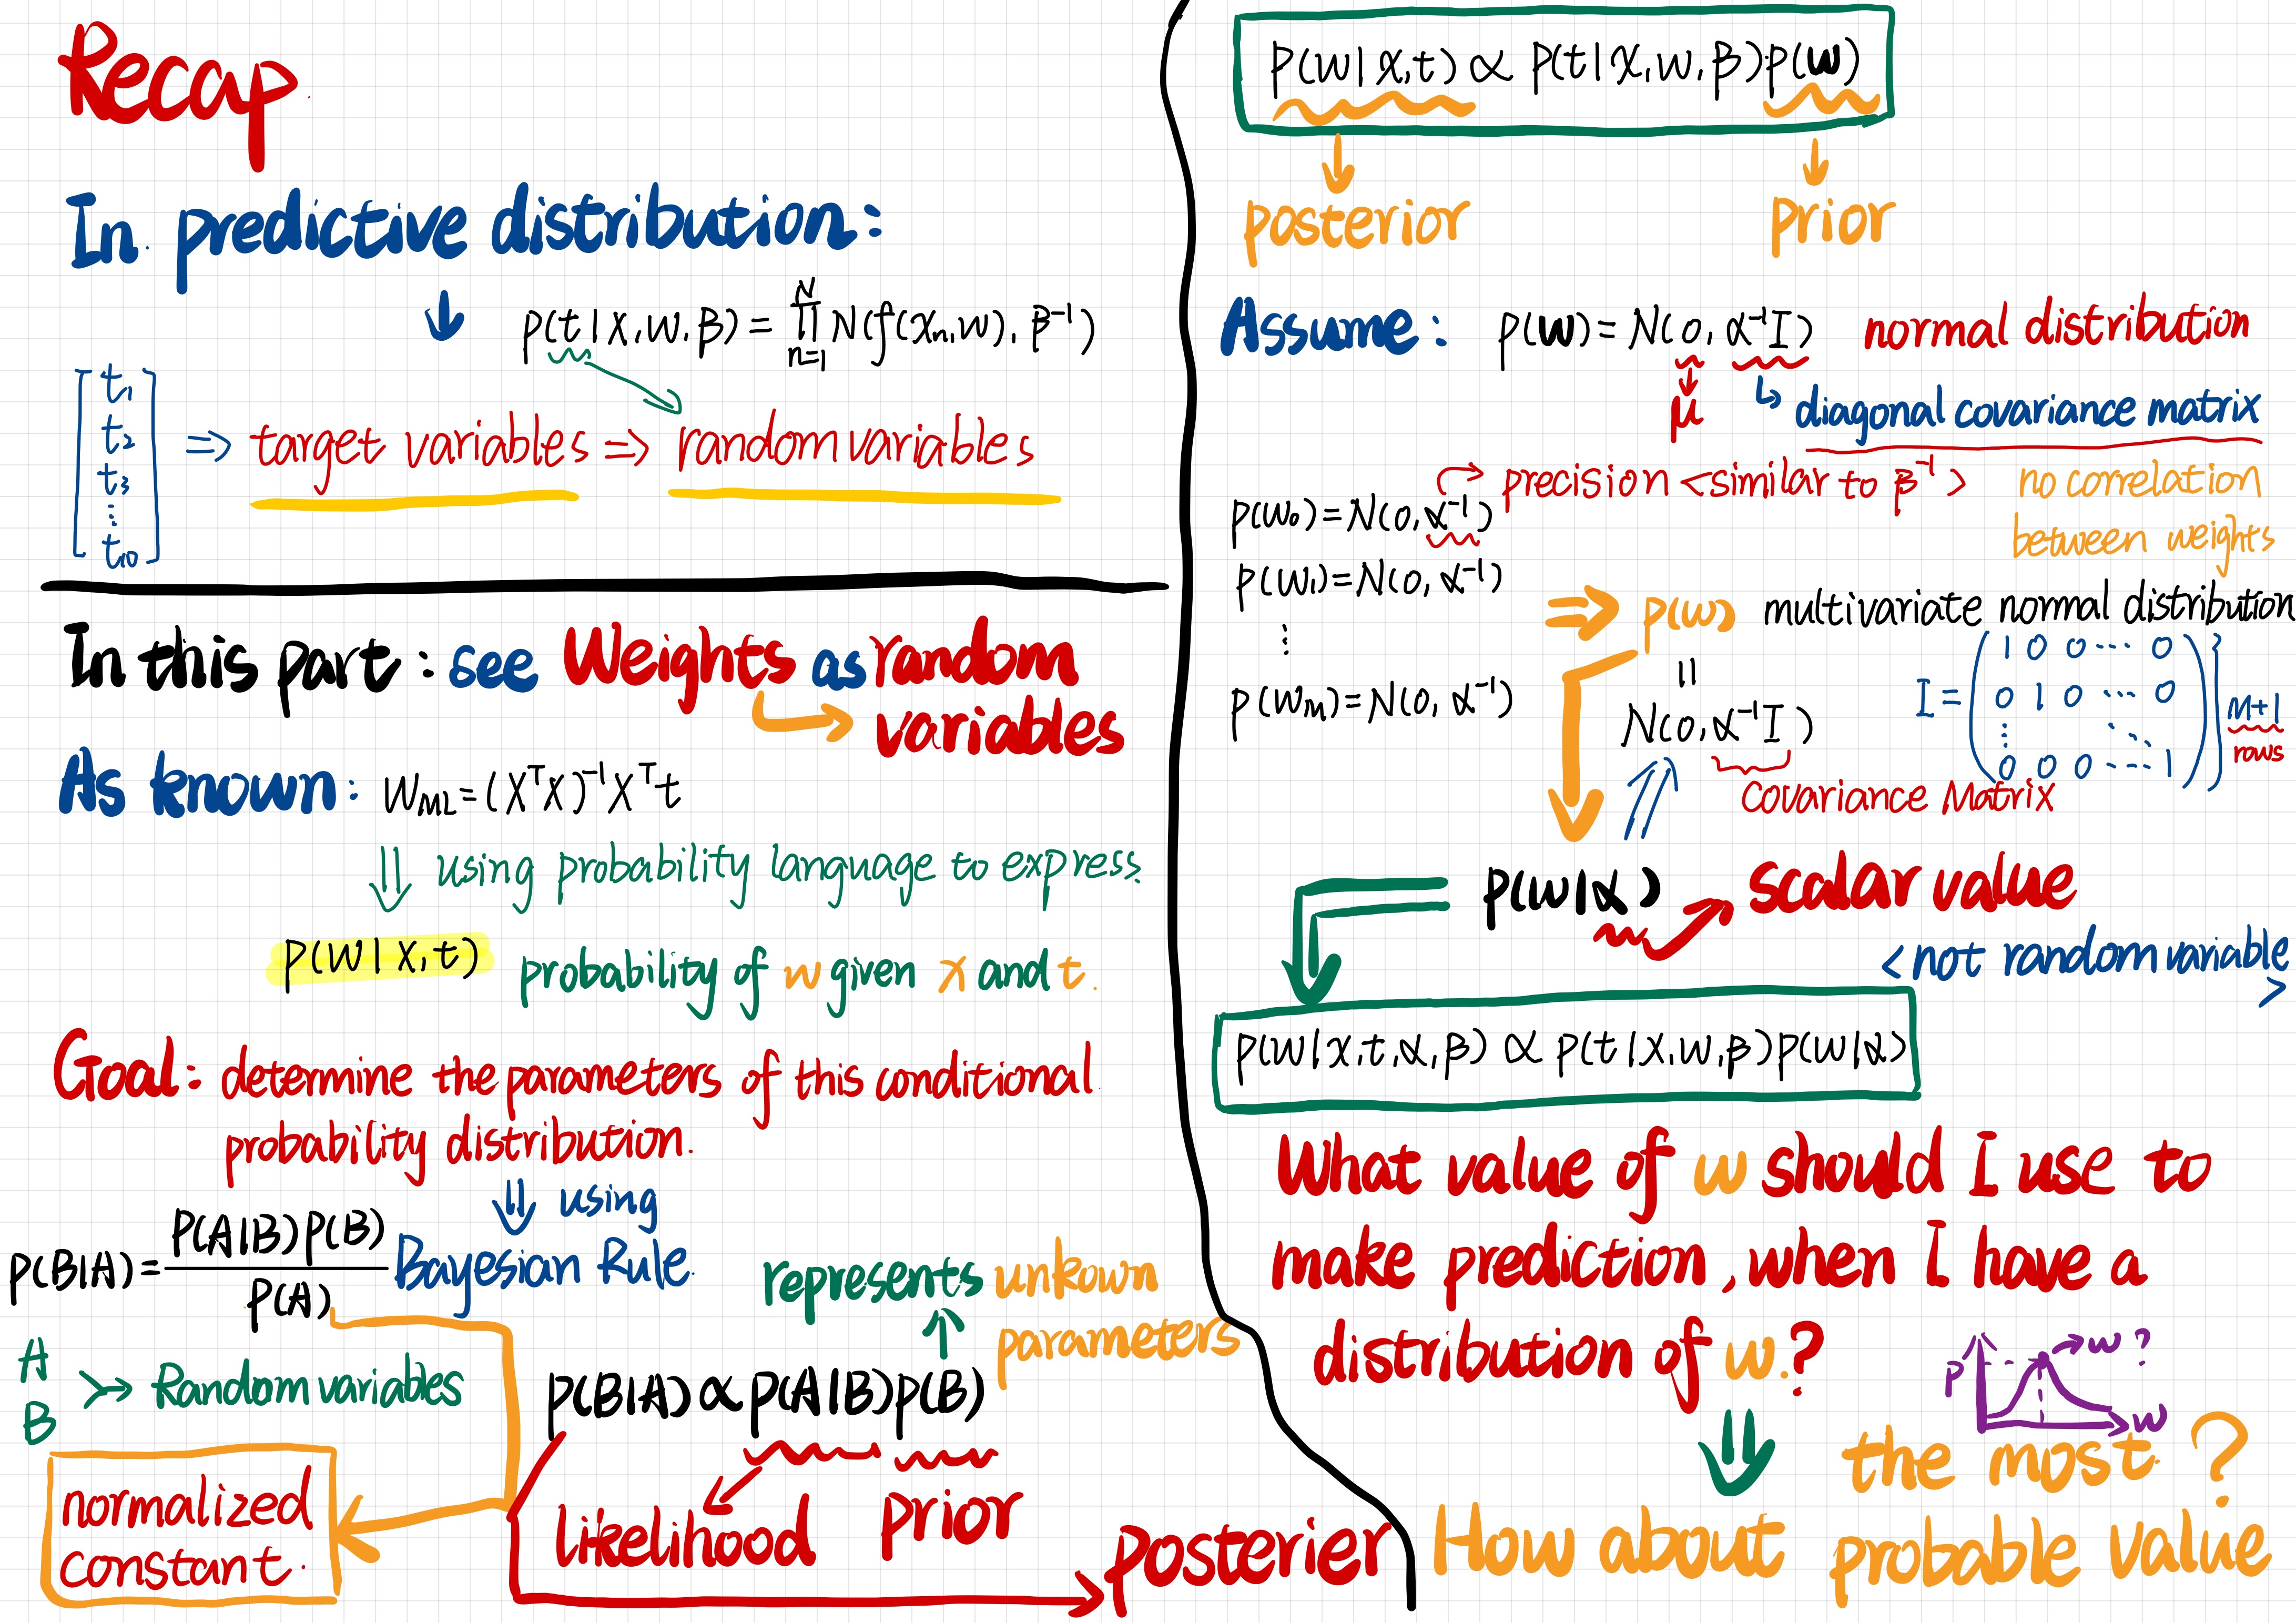 Recap
In predictive distribution:
p(t|X,W,β) = ∏_{n=1}^{N} N(f(xₙ,w), β⁻¹)
[t₁
t₂
t₃
⋮
t₁₀]
⇒ target variables ⇒ random variables
In this part: see Weights as random
variables
As known: W_ML = (XᵀX)⁻¹Xᵀt
using probability language to express
p(W|X,t) probability of w given X and t.
Goal: determine the parameters of this conditional
probability distribution.
using
p(B|A) = P(A|B)p(B) / P(A) Bayesian Rule
A
B
Random variables
normalized
constant.
represents unkown
parameters
p(B|A) ∝ p(A|B)p(B)
likelihood prior posterier
p(w|X,t) ∝ p(t|X,w,β)p(w)
posterior prior
Assume: p(w) = N(0, α⁻¹I) normal distribution
μ diagonal covariance matrix
precision <similar to β⁻¹> no correlation
between weights
p(w₀) = N(0, α⁻¹)
p(w₁) = N(0, α⁻¹)
⋮
p(w_M) = N(0, α⁻¹)
⇒ p(w) multivariate normal distribution
=
N(0, α⁻¹I)
Covariance Matrix
I = (1 0 0 ⋯ 0
0 1 0 ⋯ 0
⋮ ⋱
0 0 0 ⋯ 1)
M+1
rows
p(w|α) scalar value
<not random variable
>
p(w|X,t,α,β) ∝ p(t|X,w,β)p(w|α)
What value of w should I use to
make prediction, when I have a
distribution of w.?
P w?
w
How about the most ?
probable value